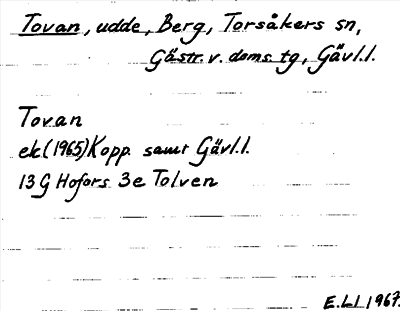 Tovan, udde, Berg, Torsåkers sn,
Gästr. v. doms. tg, Gävl.l.
Tovan
ek (1965) Kopp. samt Gävl.l.
13 G Hofors 3e Tolven
E.Ll 1967.